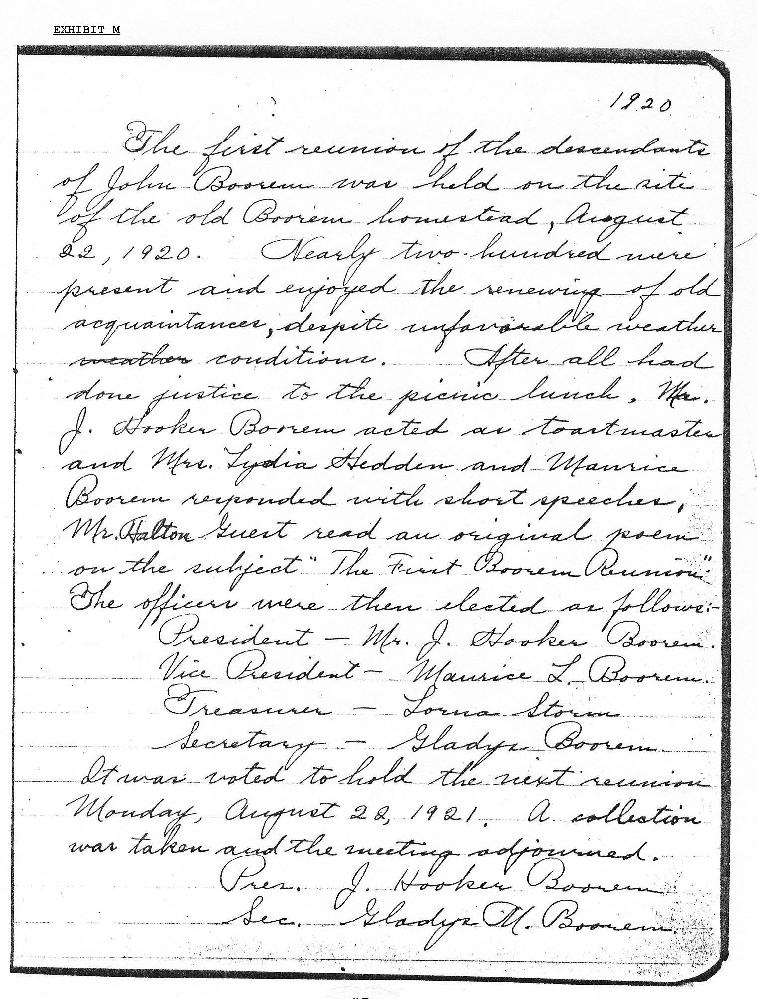 EXHIBIT M
1920
The first reunion of the descendants
of John Boorem was held on the site
of the old Boorem homestead, August
22, 1920. Nearly two hundred were
present and enjoyed the renewing of old
acquaintances, despite unfavorable weather
weather conditions. After all had
done justice to the picnic lunch, Mr.
J. Hooker Boorem acted as toastmaster
and Mrs. Lydia Hedden and Maurice
Boorem responded with short speeches,
Mr. Halton Guest read an original poem
on the subject "The First Boorem Reunion".
The officers were then elected as follows:-
President - Mr. J. Hooker Boorem.
Vice President - Maurice L. Boorem.
Treasurer - Lorna Storm
Secretary - Gladys Boorem
It was voted to hold the next reunion
Monday, August 22, 1921. A collection
was taken and the meeting adjourned.
Pres. J. Hooker Boorem
Sec. Gladys M. Boorem.